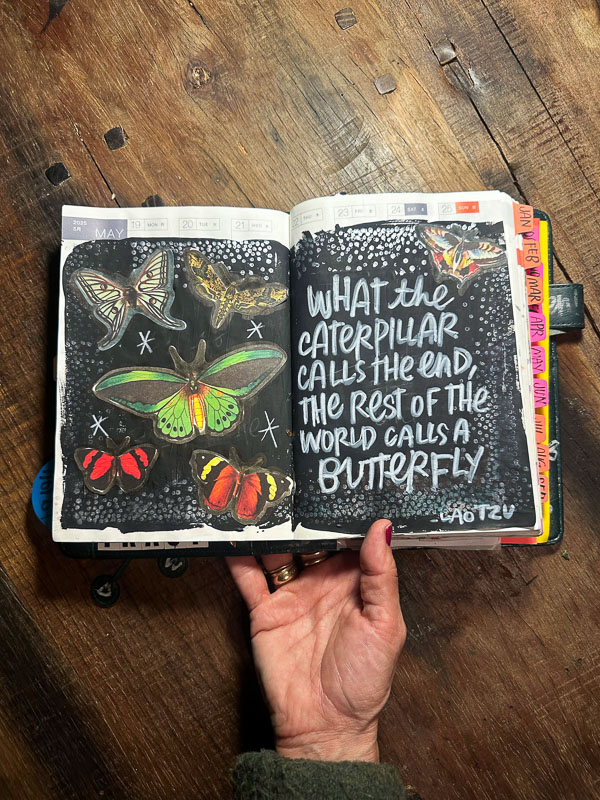 2025
5月
MAY
19 MON 月
20 TUE 火
21 WED 水
23 FRI 金
24 SAT 土
25 SUN 日
WHAT the
CATERPILLAR
CALLS THE END,
THE REST OF THE
WORLD CALLS A
BUTTERFLY
-LAO TZU
JAN
FEB
MAR
APR
MAY
JUN
JUL
AUG
SEP